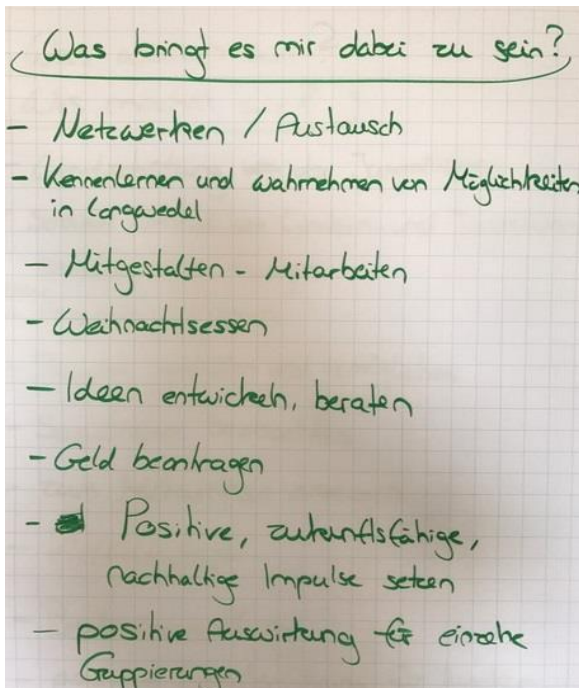 Was bringt es mir dabei zu sein?
- Netzwerken / Austausch
- Kennenlernen und wahrnehmen von Möglichkeiten
in Langwedel
- Mitgestalten - Mitarbeiten
- Weihnachtsessen
- Ideen entwickeln, beraten
- Geld beantragen
- Positive, zukunftsfähige,
nachhaltige Impulse setzen
- positive Auswirkung für einzelne
Gruppierungen